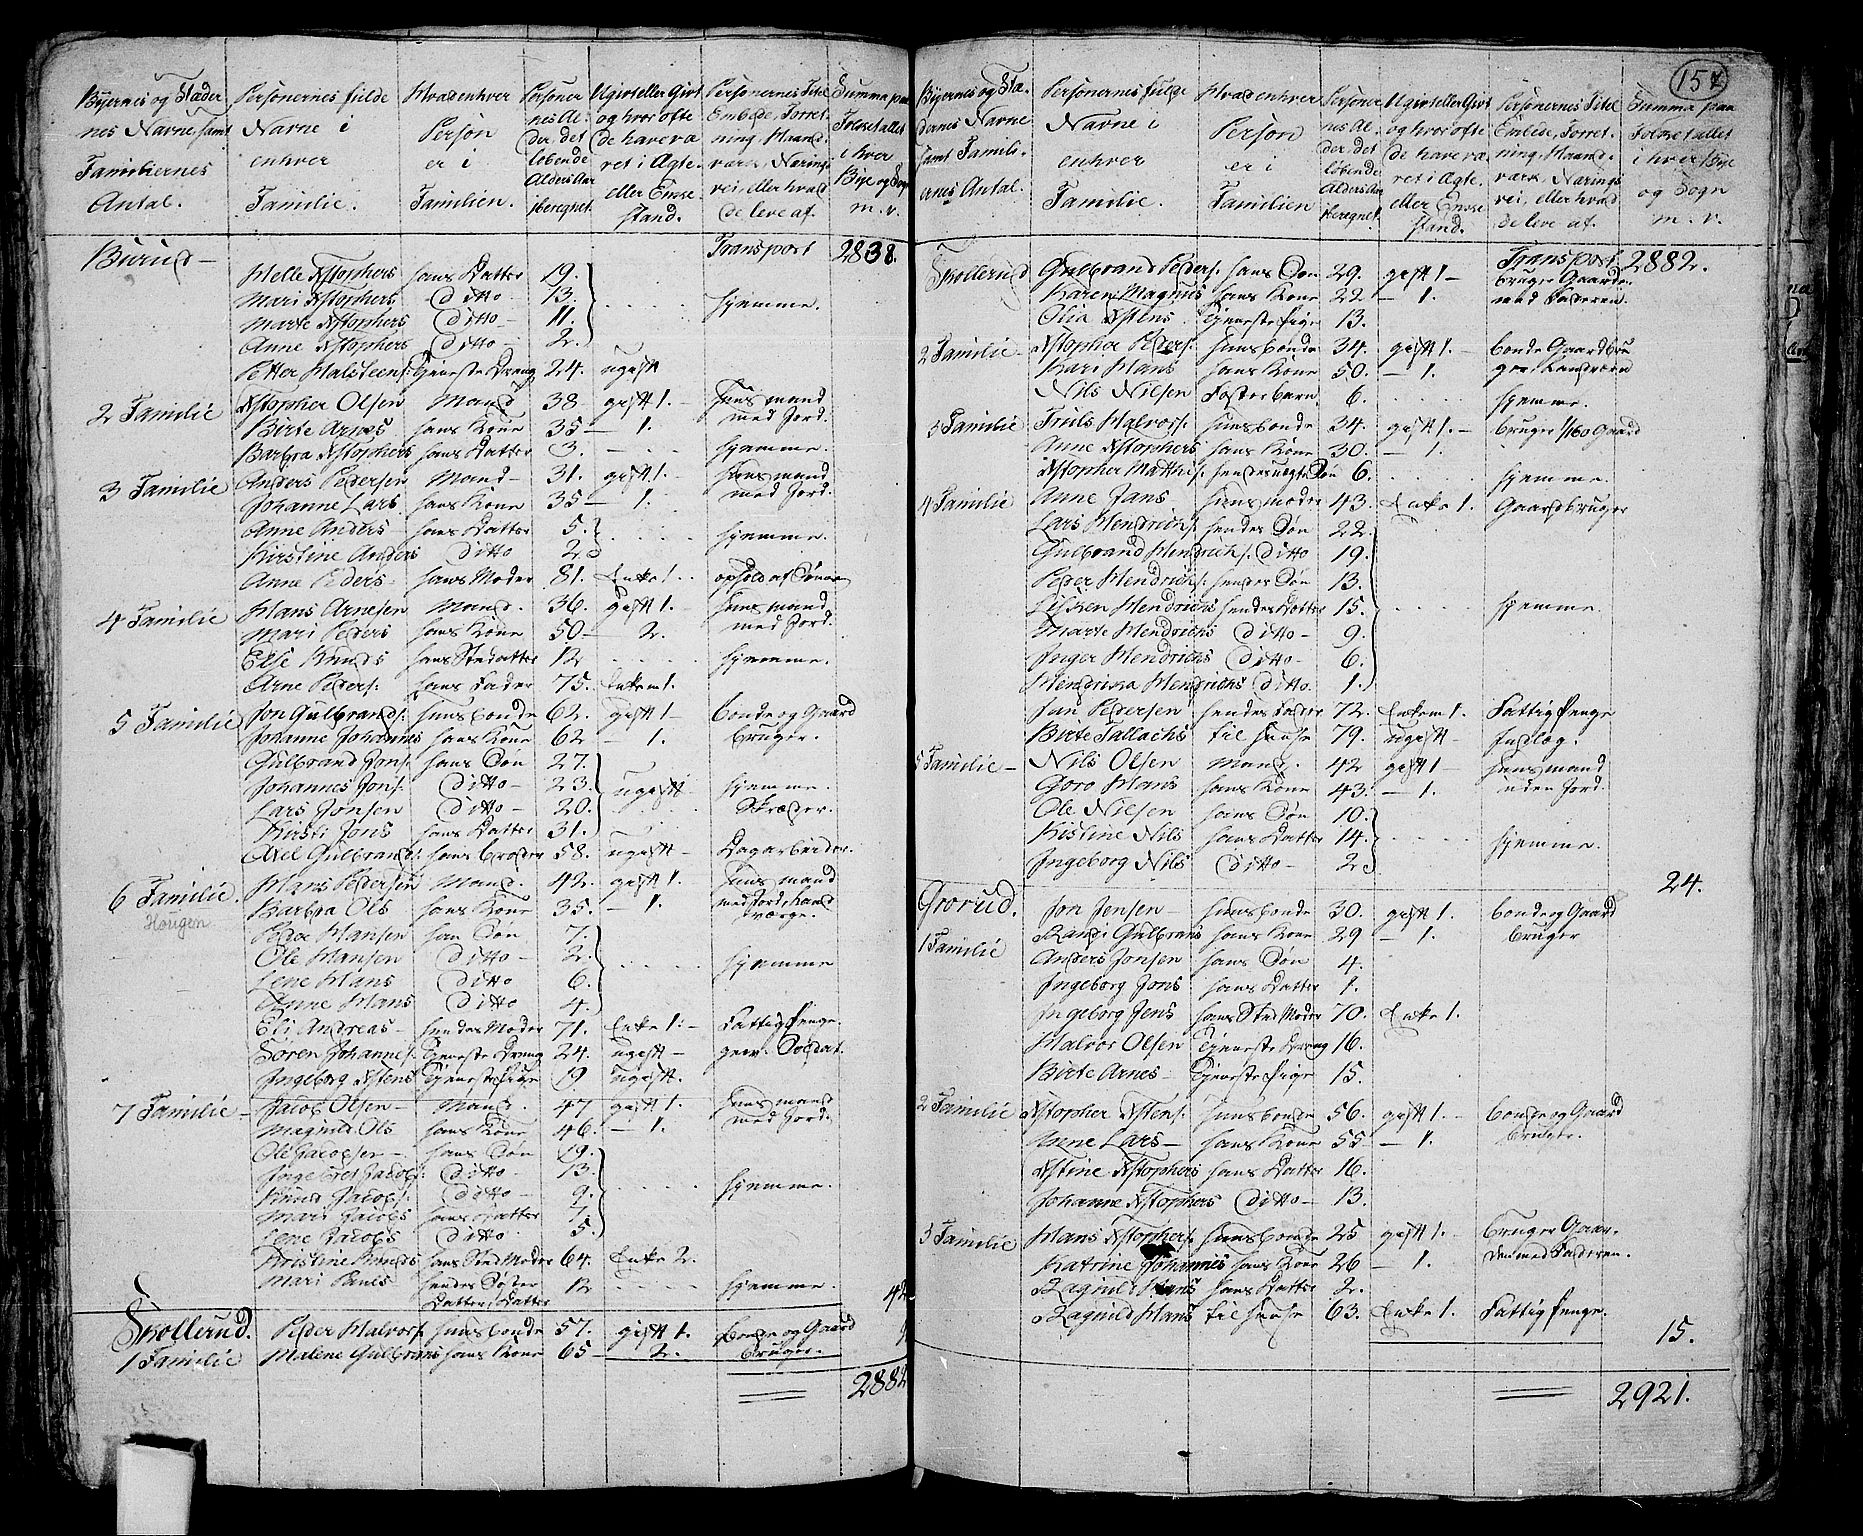 Byernes og Stæder
nes Navne samt
Familiernes
Antal.
Personernes fulde
Navne i
enhver
Familie.
Hvad enhver
Person
er i
Familien.
Personer
nes Al-
der, det
løbende
Alders Aar
iberegnet.
Ugivt eller Givt
og hvor ofte
de have væ
ret i Ægte
eller Enke
stand.
Personernes Titel
Embede, Forret
ning, Haand
værk, Nærings
vei, eller hvad
de leve af.
Summa paa
Folketallet
i hver
Bye og Sogn
m. v.
Burud – Transport 2838.
Helle Xstophers hans Datter 19.
Mari Xstophers Ditto 13. hjemme.
Marte Xstophers Ditto 11.
Anne Xstophers Ditto 2.
Petter Halsteens: Tjeneste Dreng 24. ugift
2 Familie Xstopher Olsen Mand 38 gift 1. Huusmand
Birte Arnes hans Kone 35 – 1. med Jord.
Barbra Xstophers hans Datter 3. hjemme.
3 Familie Anders Pedersen Mand 31. gift 1. Huusmand
Johanne Lars hans Kone 35 – 1. med Jord.
Anne Anders hans Datter 5. hjemme.
Kirstine Anders Ditto 2
Anne Peders hans Moder 81. Enke 1. ophold af Sønnen
4 Familie Hans Arnesen Mand. 36. gift 1. Huusmand
Mari Peders hans Kone 50 – 2. med Jord.
Else Knuds hans Steddatter 12 hjemme.
Arne Peders: hans Fader 75. Enkem 1.
5 Familie Jon Gulbrands: huusbonde 62. gift 1 – bonde og Gaard
Johanne Johannes hans Kone 62 – 1. bruger.
Gulbrand Jons: hans Søn 27.
Johannes Jons: Ditto – 23. ugift hjemme.
Lars Jonsen Ditto – 20. Skræder.
Kirsti Jons hans Datter 31.
Axel Gulbrands: hans broder 58. ugift – Dagarbeider.
6 Familie. Hans Pedersen Mand. 42. gift 1. Huusmand
Haugen
Barbra Ols hans Kone 35. – 1. med Jord, Haand
værge.
Peder Hansen han Søn 7.
Ole Hansen Ditto – 2. hjemme
Lene Hans Ditto 6.
Anne Hans Ditto 4.
Eli Andreas – hendes Moder 71. Enke 1. – Fattig Penge.
Søren Johannes: Tjeneste Dreng 24. ugift – gew. Soldat.
Ingeborg Xstens Tjeneste Pige 19 ugift.
7 Familie – Jacob Olsen – Mand. 47 gift 1. Huusmand
Magnild Ols hans Kone 46. – 1. med Jord.
Ole Jacobsen – hans Søn 19.
Ingebret Jacobs: Ditto 13. hjemme.
Knud Jacobs: Ditto – 9.
Mari Jacobs hans Datter 7.
Lene Jacobs Ditto 5.
Kristine Knuds hans Sted Moder 64. Enke 2.
Mari Knuds hendes Søster 12 hjemme. 42
Datters Datter
Skollerud. Peder Halvors: huusbonde 57. gift 1. Bonde og Gaard
1 Familie Malene Gulbrans hans Kone 65 – 2. bruger.
2882
157
Byernes og Stæ-
dernes Navne
samt Famili-
ernes Antal.
Personernes fulde
Navne i
enhver
Familie.
Hvad enhver
Person
er i
Familien
Personer
nes Al-
der, det
løbende
Alders Aar
iberegnet.
Ugivt eller Givt
og hvor ofte
de have væ
ret i Ægte
eller Enke
stand.
Personernes Titel
Embede, Forret
ning, Haand-
værk, Nærings
vei, eller hvad
de leve af.
Summa paa
Folketallet
i hver Bye
og Sogn
m. v.
Transport 2882.
Skollerud Gulbrand Peders: hans Søn 29. gift 1 – bruger Gaarde
Karen Magnus hans Kone 22 – 1. med Faderen.
Olia Xstens Tjeneste Pige 13.
2 Familie – Xstopher Peders: huusbonde 34. gift 1. – bonde Gaardbru
Kari Hans hans Kone 50. – 1. ger Landværn
Nils Nilsen Fosterbarn 6. hjemme.
3 Familie Truls Halvors: huusbonde 34. gift 1. – bruger 1/160 Gaard
Anne Xstophers hans Kone 30. – 1.
Xstopher Matthis: hendes uægte Søn 6. hjemme.
4 Familie Anne Jans huusmoder 43. Enke 1. Gaardbruger
Lars Hendrichs: hendes Søn 22.
Gulbrand Hendrichs: Ditto 19.
Peder Hendrichs: hendes Søn 13.
Lisken Hendrichs hendes Datter 15. hjemme.
Marte Hendrichs Ditto – 9.
Inger Hendrichs Ditto – 6.
Hendrikka Hendrichs Ditto. 1.
Jan Pedersen hendes Fader 72. Enkem 1. Fattig Penge
Birte Tallachs til huuse 79. ugift – Indlæg.
5 Familie – Nils Olsen Mand. 42 gift 1 – Huusmand
Goro Hans hans Kone 43. – 1. uden Jord.
Ole Nilsen hans Søn 10.
Kistine Nils hans Datter 14. hjemme.
Ingeborg Nils Ditto – 2.
24.
Grorud. Jon Jensen – huusbonde 30. gift 1. bonde og Gaard
1 Familie Randi Gulbrans hans Kone 29 – 1. bruger
Anders Jonsen hans Søn 4.
Ingeborg Jons hans Datter 1.
Ingeborg Jens hans Sted Moder 70. Enke 1.
Halvor Olsen Tjeneste Dreng 16.
Birte Arnes – Tjeneste Pige 15.
2 Familie Xstopher Xstens: huusbonde 56. gift 1. – bonde og Gaard
Anne Lars – hans Kone 55 – 1. bruger.
Xstine Xstophers hans Datter 16.
Johanne Xstophers Ditto – 13.
3 Familie Hans Xstophers: huusbonde 25 gift 1. – bruger Gaar-
Katrine Johannes hans Kone 26 – 1. den med Faderen.
Ragnild Hans hans Datter 2.
Ragnild Hans til huuse 63. Enke 1. Fattig Penge.
15.
2921.